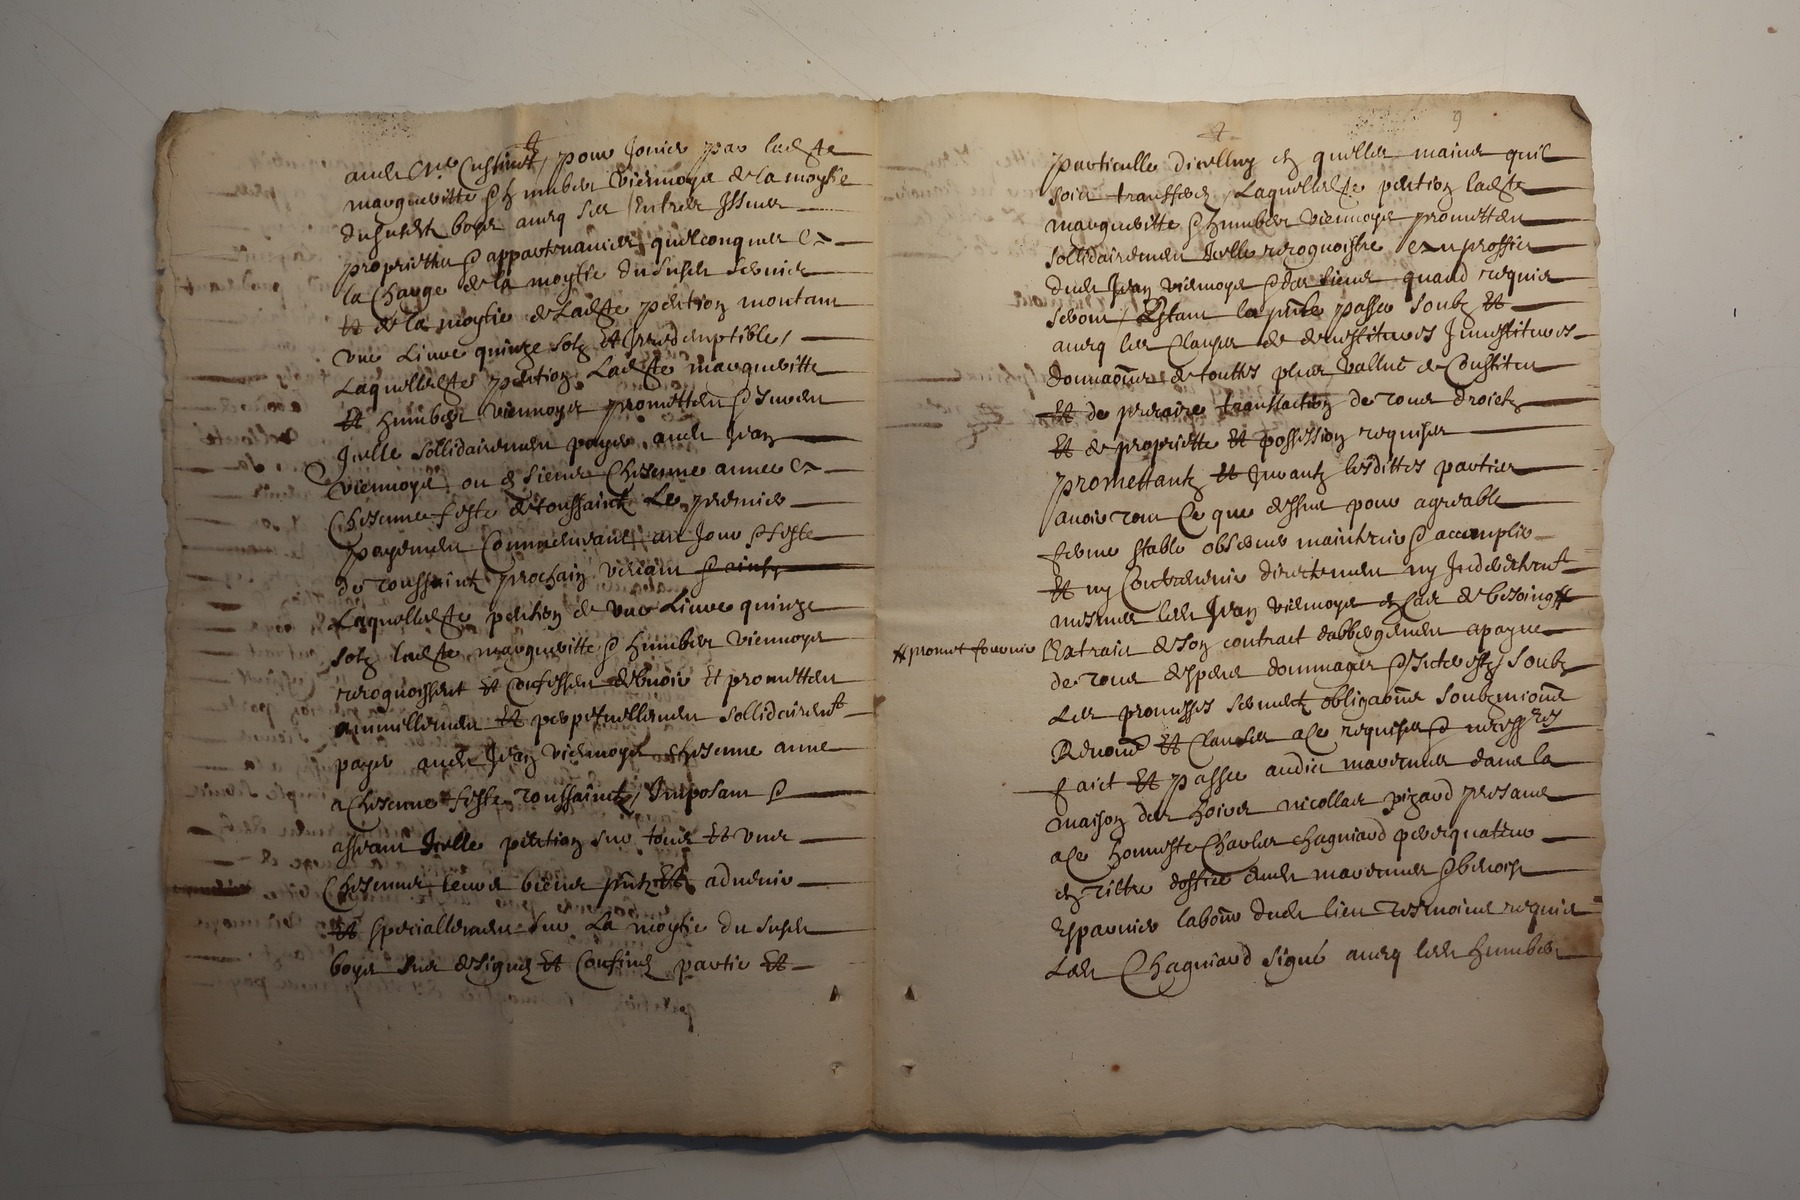 pour Jouir par ladte
margueritte & humbert Viennoys de la moytie
du susdt boys aueq ses Entrees Issues
proprietes & appartenances quelconques &
la Charge de la moytie du susdt seruice
Et de la moytie de Ladte pention montant
vne Liure quinze solz Et Irredemptible,
Laquelledte pention Ladte margueritte
Et humbert viennoys promettent &
Icelle sollidairement payer audt Jean
viennoys ou es siens Chesenne annee &
Chesenne feste de toussaintz Le premier
payement Commencant au Jour & feste
de toussaintz prochain venant
Laquelledte pention de vne Liure quinze
solz ladte margueritte & humbert viennoys
recognoissent Et Confessent debuoir Et promettent
annuellement Et perpetuellement sollidairemt
payer audt Jean viennoys chesenne anne
a Chesenne feste toussaintz, Imposant &
asseant Icelle pention sur tous Et vns
Chesenns leurs biens pntz Et aduenir
Et speciallement sur La moytie du susdt
boys sus designez Et Confinez partie Et
9
particulle d'icelluy et quelles mains quil
soict transferez, Laquelledte pention ladte
margueritte & humbert viennoys promettent
sollidairement Icelle recognoistre au proffict
dudt Jean viennoys & des siens quand requis
seront, Estant la pnte passee soubz Et
aueq les Clauses de deuestitures Inuestitures
donnaons de touttes plus vallues de Constitut
Et de precaire translaction de tous droictz
Et de propriette Et possession requises
promettantz Et Jurantz lesdittes parties
auoir tout Ce que dessus pour agreable
ferme stable obseruer maintenir & accomplir
Et ny Contreuenir directement ny Indirectemt
mesmes ledt Jean viennoys et Cas de besoing #
# promet fournir L'Extraict de son contract dabbergement a payne
de tous despens dommages & Interestz, soubz
Les promesses sermentz obligaons soubzmions
Renons Et Clauses a ce requises & necessres
faict Et passee audict marcennes dans la
maison des hoirs nicollas pizard presans
a ce honneste Charles Chagniard perequateur
et tiltre doffice dudt marcennes & benoist
Esparuier labour dudt lieu tesmoins requis
Ledt Chagniard signe aueq ledt humbert